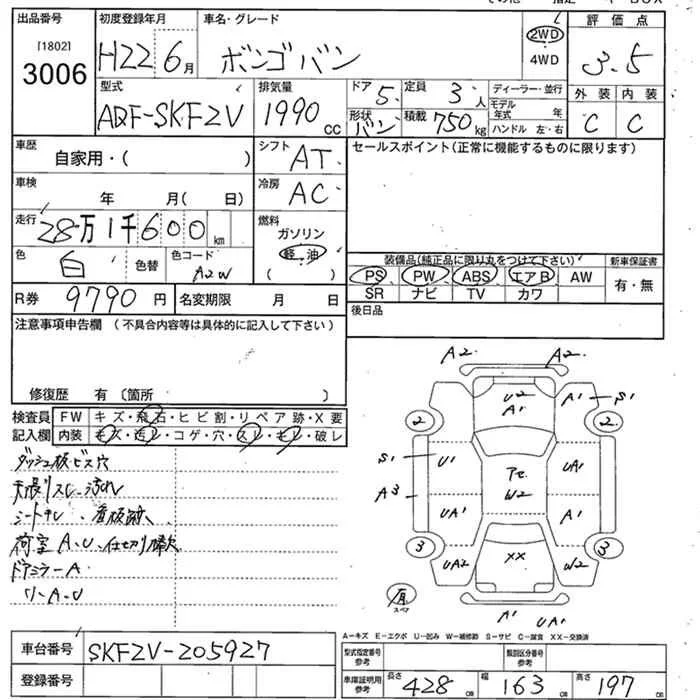 出品番号 初度登録年月 車名・グレード 評価点
[1802]
3006 H22 6月 ボンゴバン 2WD 4WD 3.5
型式 排気量 ドア 5 定員 3人 ディーラー・並行 外装 内装
モデル年式 年
ADF-SKF2V 1990cc 形状 バン 積載 750kg ハンドル 左・右 C C
車歴 自家用・( ) シフト AT セールスポイント(正常に機能するものに限ります)
車検 年 月( 日) 冷房 AC
走行 28万1千600km 燃料 ガソリン 軽油 ( )
色 白 色替 色コード A2W 装備品(純正品に限り丸をつけて下さい) 新車保証書
PS PW ABS エアB AW 有・無
R券 9790円 名変期限 月 日 SR ナビ TV カワ
注意事項申告欄 (不具合内容等は具体的に記入して下さい) 後日品
修復歴 有 〔箇所 〕
検査員 FW キズ・飛石・ヒビ割・リペア跡・X要
記入欄 内装 キズ・汚レ・コゲ・穴・スレ・キレ・破レ
ダッシュ板ビス穴
天張リスレ、汚れ
シートキレ、看板跡、
荷室A、U、仕切り欠
ドアミラーA
リーA、U
A2 A2
U2 A1 A1 S1
2 2
S1 U1 アセ W2 UA1
A3 UA1 A1
3 UA2 XX W2 3
有 スペア A1 UA1
A-キズ E-エクボ U-凹み W-補修跡 S-サビ C-腐食 XX-交換済
車台番号 SKF2V-205927 型式指定番号 参考 類別区分番号 参考
登録番号 車庫証明用 参考 長さ 428cm 幅 163cm 高さ 197cm